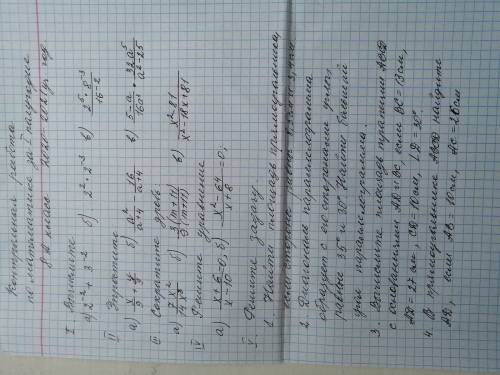 Контрольная работа
по математике за I полугодие
8 класс 2020-2021 уч. год.
I Вычислите
а) 2⁻² + 3⁻² б) 2² · 2⁻³ в) 2⁵ · 8⁻³ / 16⁻²
II Упростите
а) x/9 + y/9 б) a²/a+4 - 16/a+4 в) 5-a/16a³ · 32a⁵/a²-25
III Сократите дробь
а) 7x²/14x³ б) 3(m+11)/9(m+11) в) x²-81/x²-18x+81
IV Решите уравнение
а) x+6/x-10 = 0, б) x²-64/x+8 = 0;
V. Решите задачу.
1. Найти площадь прямоугольника,
если стороны равны
2. Диагональ параллелограмма
образует с его сторонами углы,
равные 35° и 30°. Найти больший
угол параллелограмма.
3. Вычислите площадь трапеции ABCD
с основаниями AD и BC, если BC = 13 см,
AD = 27 см CD = 10 см, ∠D = 30°.
4. В прямоугольнике ABCD найдите
AD, если AB = 10 см, AC = 26 см